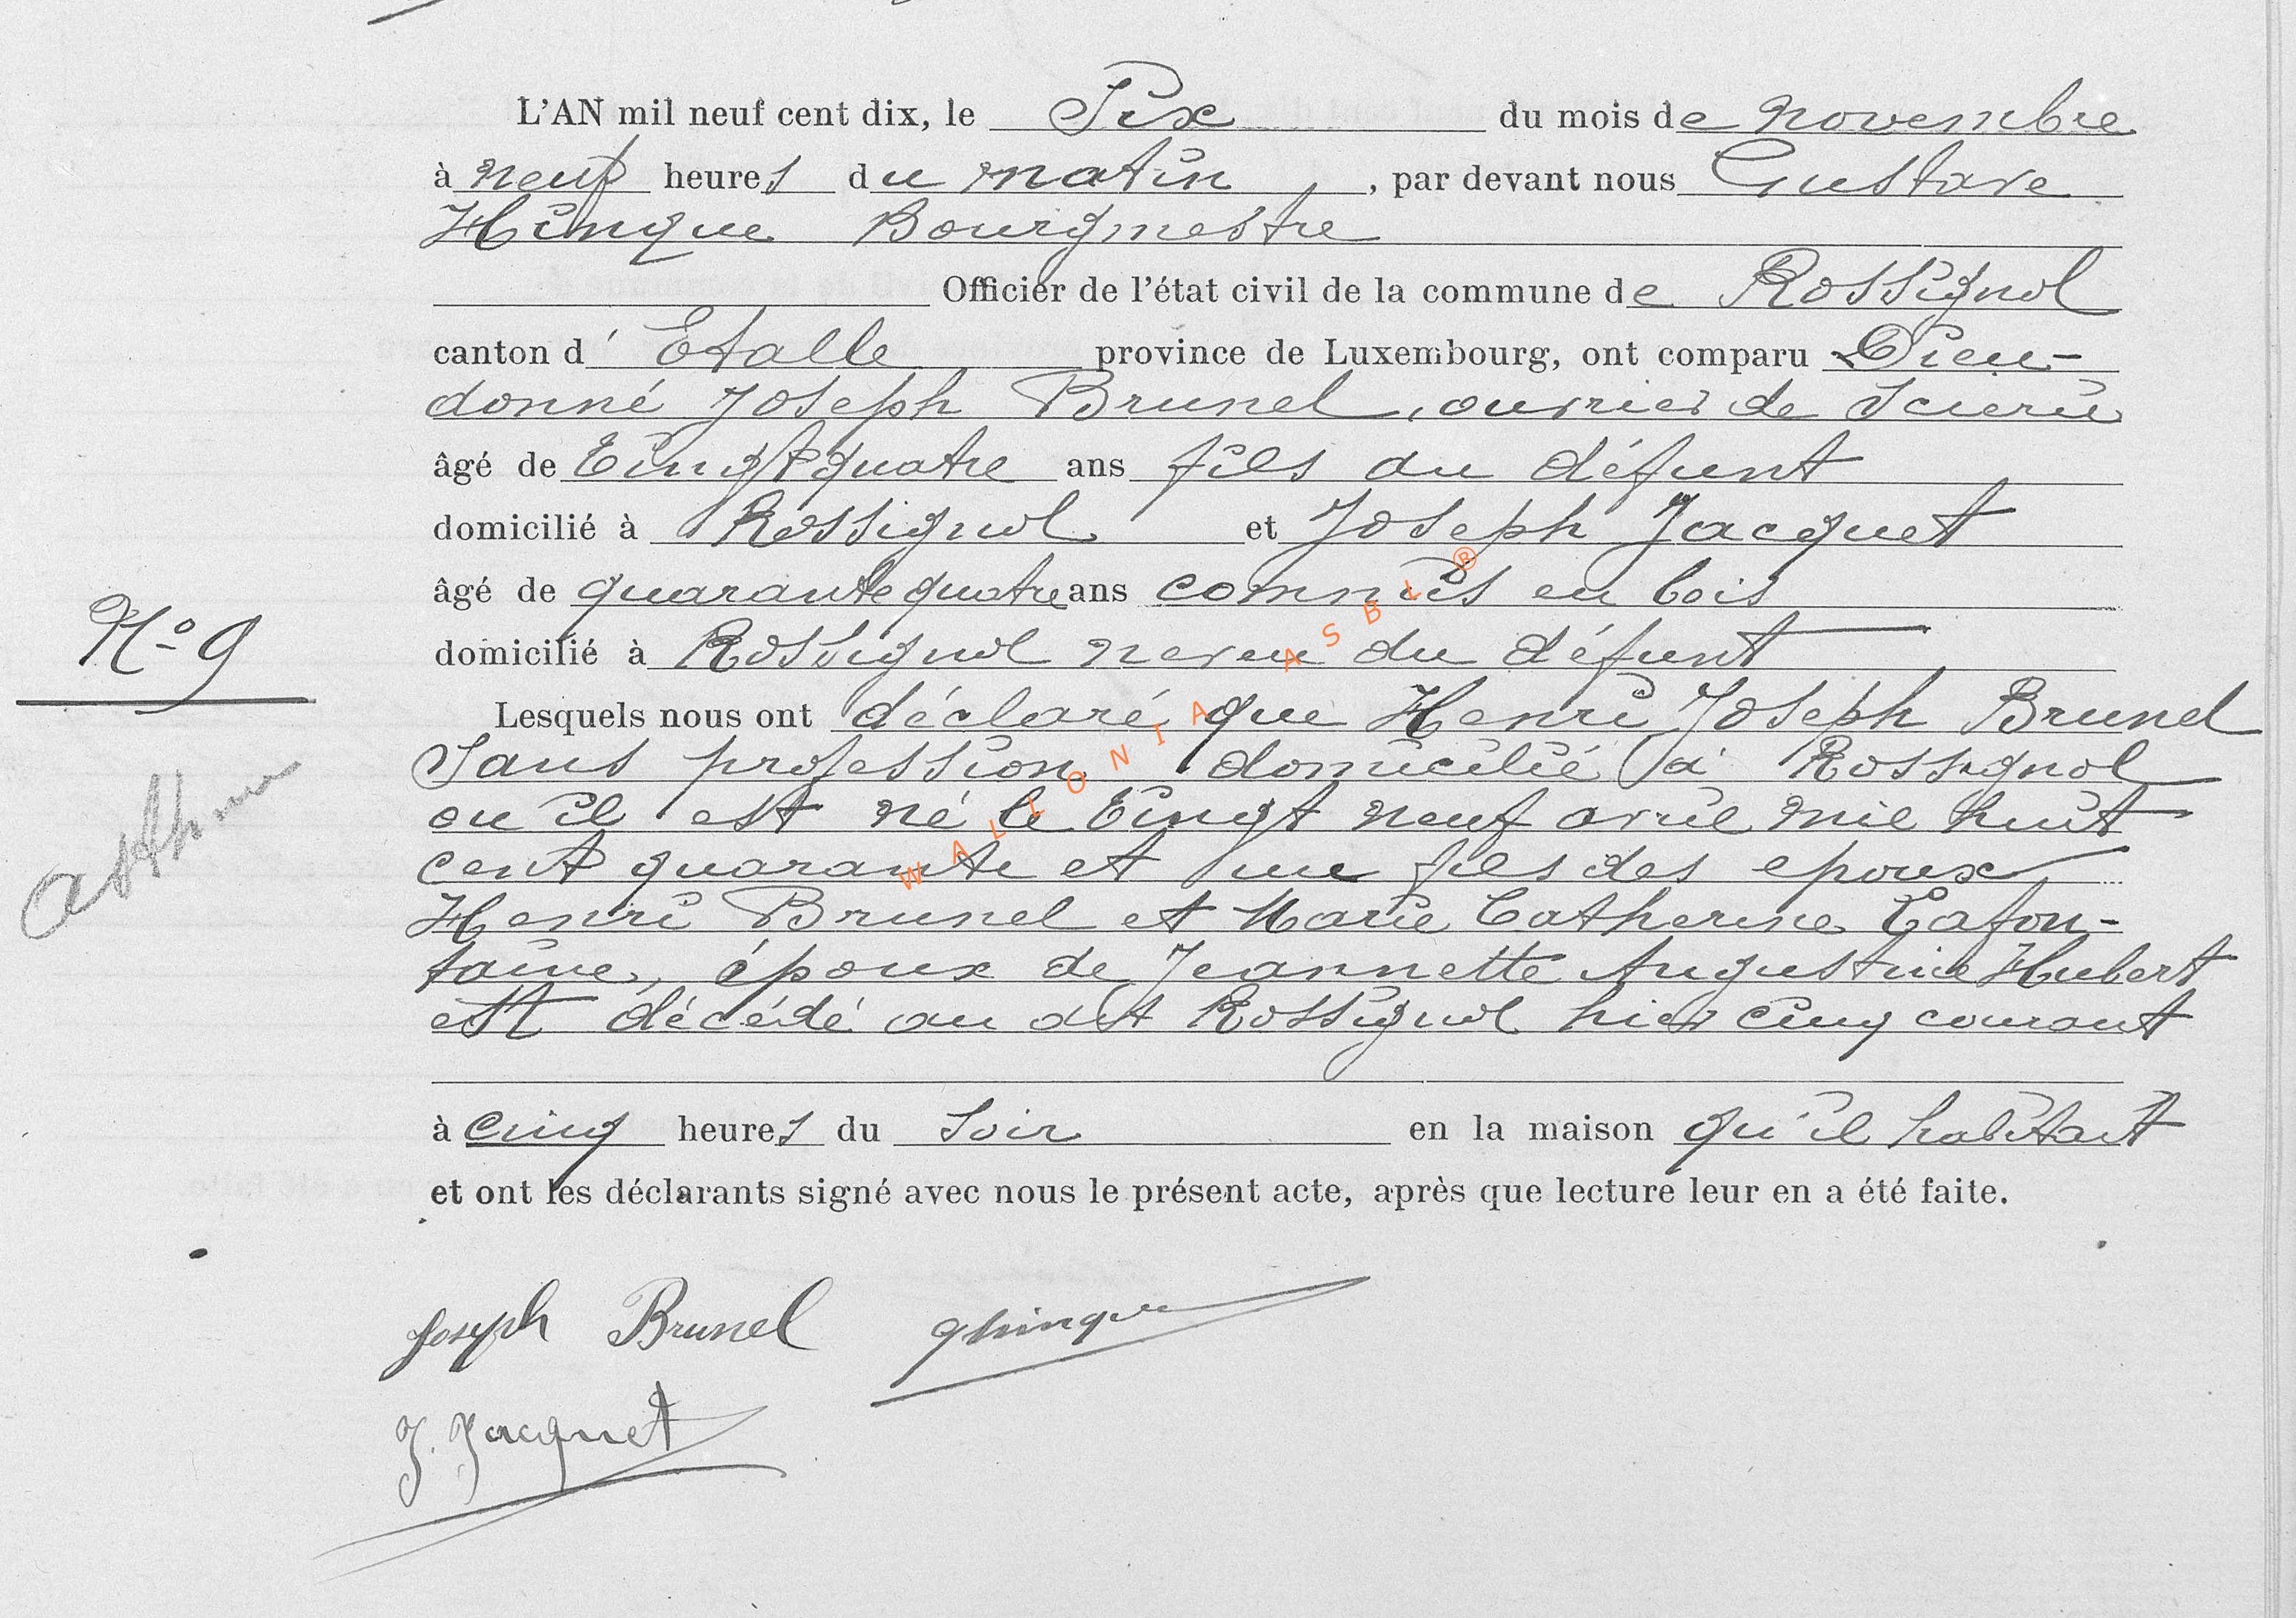 L'AN mil neuf cent dix, le Six du mois de Novembre
à neuf heures du matin, par devant nous Gustave
Hinque Bourgmestre
Officier de l'état civil de la commune de Rossignol
canton d'Etalle province de Luxembourg, ont comparu Dieu-
donné Joseph Brunel, ouvrier de Scierie
âgé de Vingt quatre ans fils du défunt
domicilié à Rossignol et Joseph Jacquet
âgé de quarante quatre ans commis en bois
N° 9
domicilié à Rossignol neveu du défunt
Lesquels nous ont déclaré que Henri Joseph Brunel
Sans profession domicilié à Rossignol
asthme
ou il est né le Vingt neuf avril mil huit
cent quarante et un fils des epoux
Henri Brunel et Marie Catherine Lafon-
taine, époux de Jeannette Augustine Hubert
est décédé au dit Rossignol hier cinq courant
à cinq heures du Soir en la maison qu'il habitait
et ont les déclarants signé avec nous le présent acte, après que lecture leur en a été faite.
Joseph Brunel ghinque
J. Jacquet
WALLONIA ASBL ®